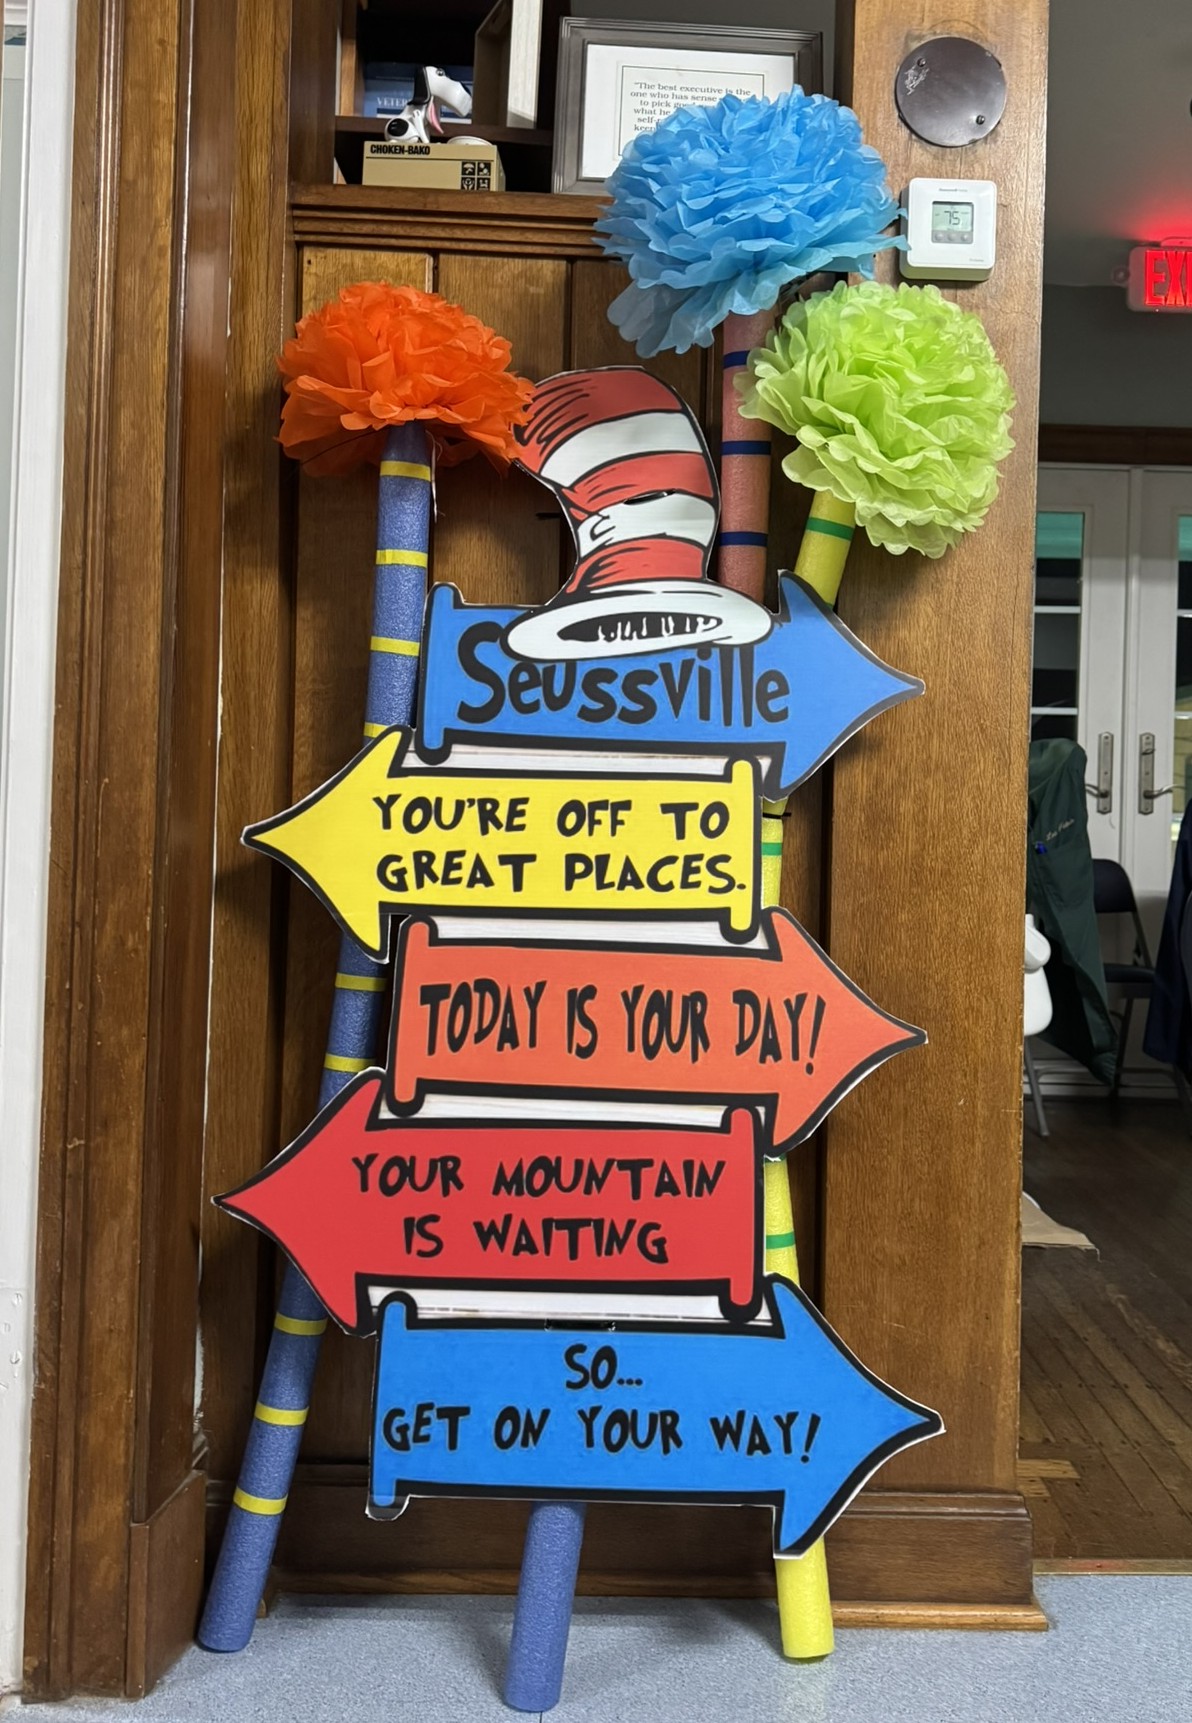 VETER
CHOKEN-BAKO
"The best executive is the
one who has sense
to pick
what he
self-
keep
Honeywell Home
75
EXI
Seussville
YOU'RE OFF TO
GREAT PLACES.
TODAY IS YOUR DAY!
YOUR MOUNTAIN
IS WAITING
SO...
GET ON YOUR WAY!